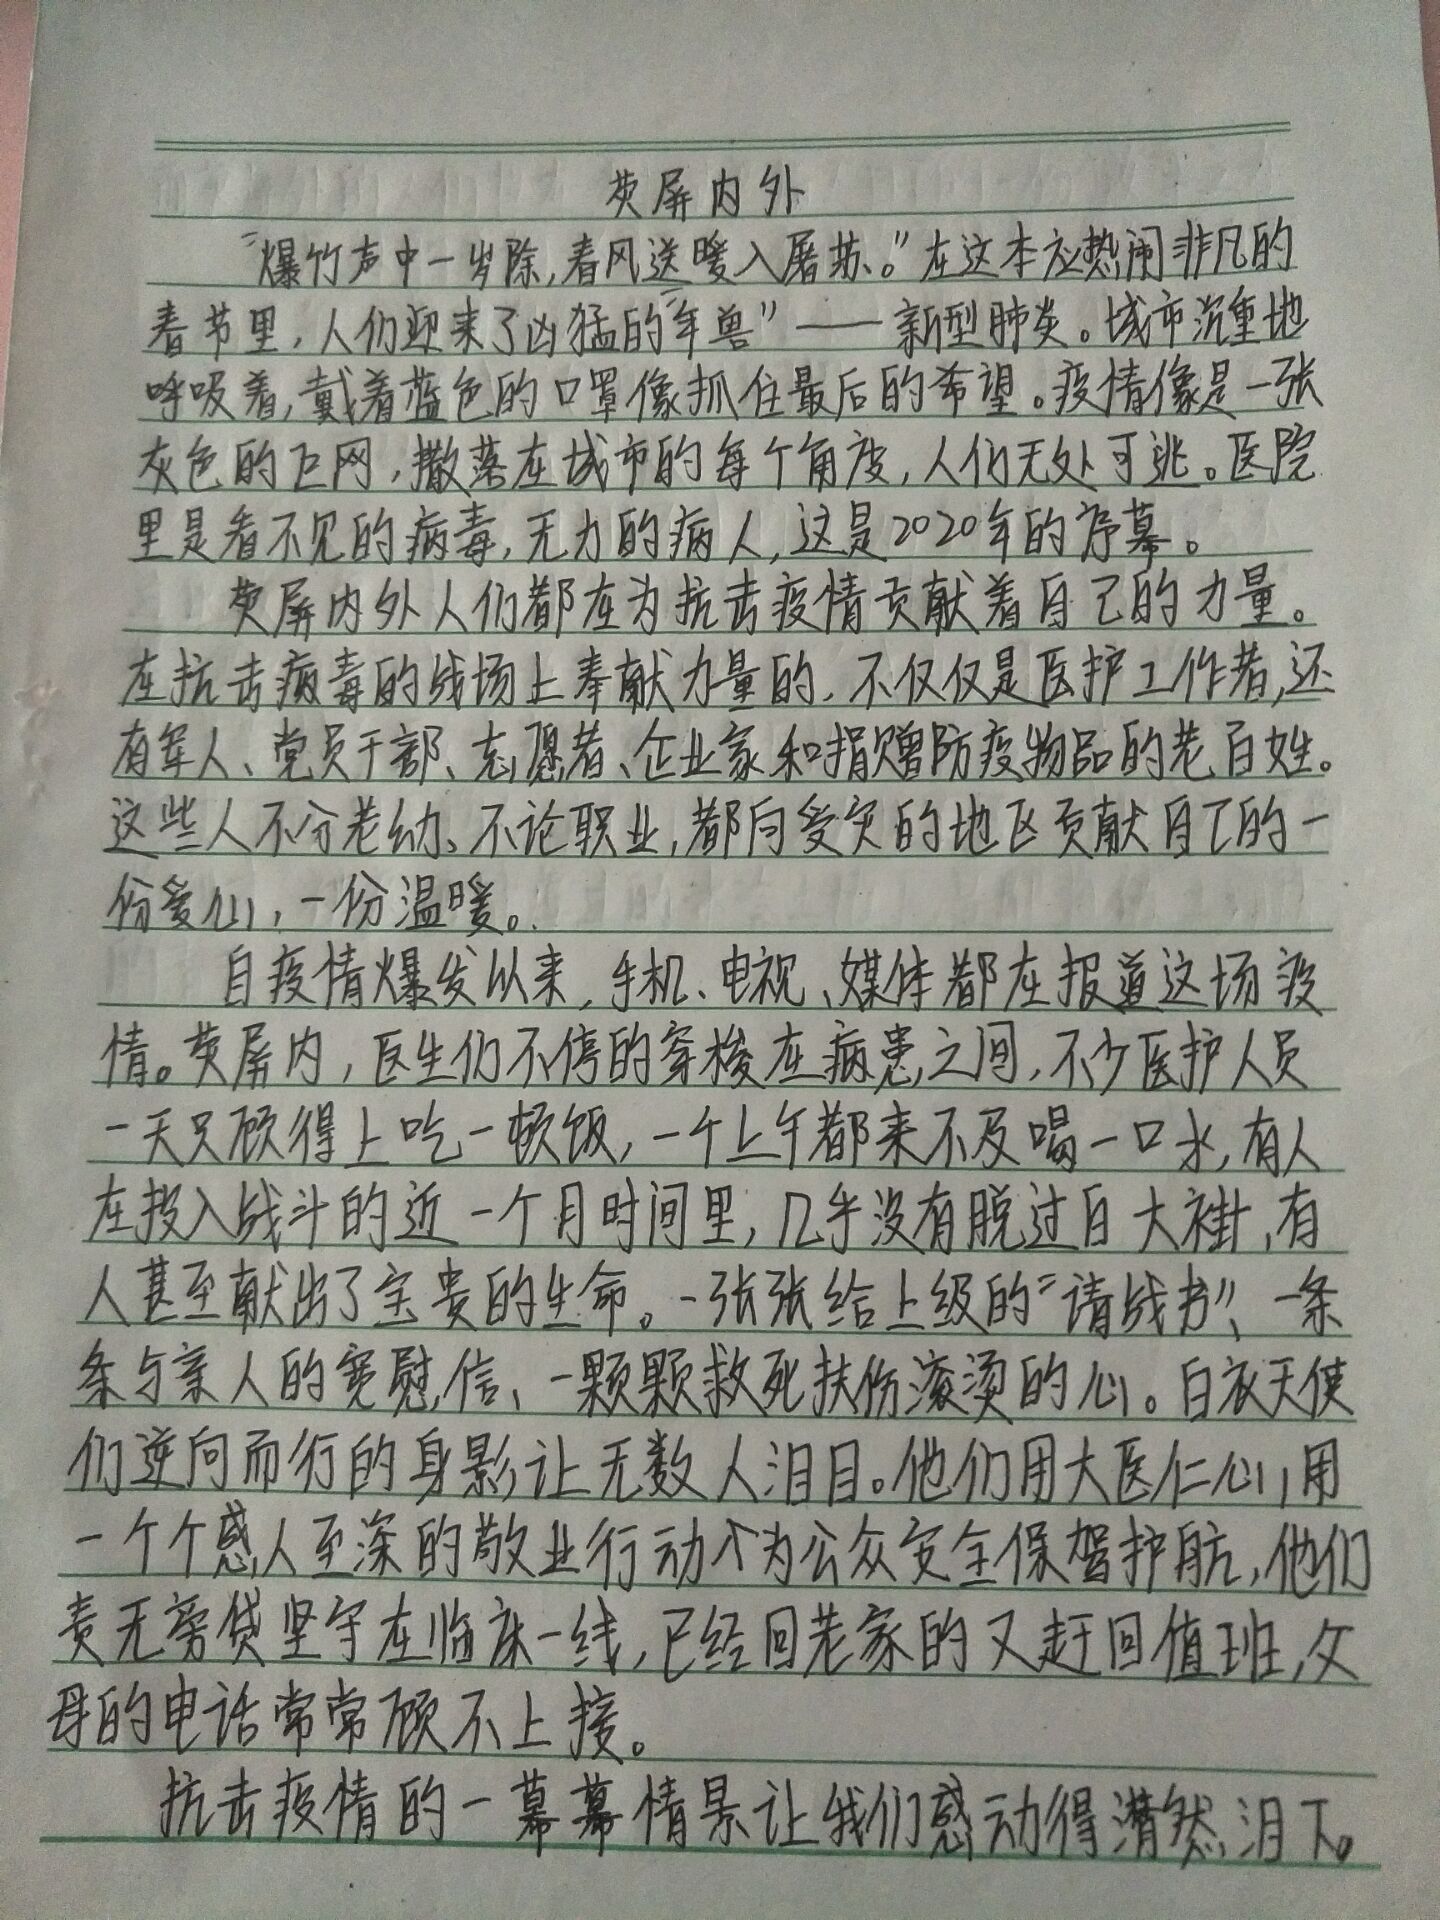 荧屏内外
“爆竹声中一岁除,春风送暖入屠苏。”在这本应热闹非凡的
春节里,人们迎来了凶猛的“年兽”——新型肺炎。城市沉重地
呼吸着,戴着蓝色的口罩像抓住最后的希望。疫情像是一张
灰色的巨网,撒落在城市的每个角度,人们无处可逃。医院
里是看不见的病毒,无力的病人,这是2020年的序幕。
荧屏内外人们都在为抗击疫情贡献着自己的力量。
在抗击病毒的战场上奉献力量的,不仅仅是医护工作者,还
有军人、党员干部、志愿者、企业家和捐赠防疫物品的老百姓。
这些人不分老幼、不论职业,都向受灾的地区贡献自己的一
份爱心,一份温暖。
自疫情爆发以来,手机、电视、媒体都在报道这场疫
情。荧屏内,医生们不停的穿梭在病患之间,不少医护人员
一天只顾得上吃一顿饭,一个上午都来不及喝一口水,有人
在投入战斗的近一个月时间里,几乎没有脱过白大褂,有
人甚至献出了宝贵的生命。一张张给上级的“请战书”、一条
条与亲人的宽慰信、一颗颗救死扶伤滚烫的心。白衣天使
们逆向而行的身影让无数人泪目。他们用大医仁心,用
一个个感人至深的敬业行动个为公众安全保驾护航,他们
责无旁贷坚守在临床一线,已经回老家的又赶回值班,父
母的电话常常顾不上接。
抗击疫情的一幕幕情景让我们感动得潸然泪下。